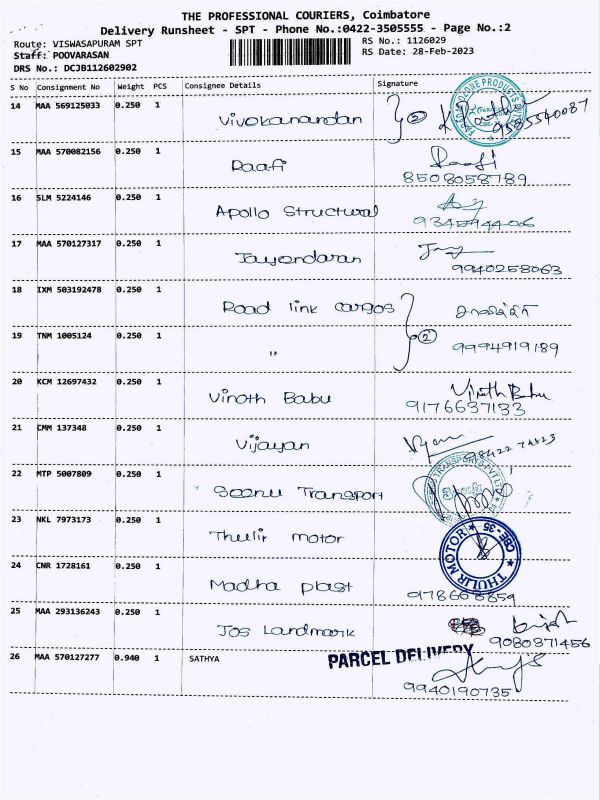 THE PROFESSIONAL COURIERS, Coimbatore
Delivery Runsheet - SPT - Phone No.:0422-3505555 - Page No.:2
Route: VISWASAPURAM SPT
Staff: POOVARASAN
DRS No.: DCJB112602902
RS No.: 1126029
RS Date: 28-Feb-2023
S No Consignment No Weight PCS Consignee Details Signature
14 MAA 569125033 0.250 1 Vivekanandan 2 9585540087
15 MAA 570082156 0.250 1 Raafi Raafi
8508058789
16 SLM 5224146 0.250 1 Apollo Structural
17 MAA 570127317 0.250 1 Jayendaran
9940258063
18 IXM 503192478 0.250 1 Road link cargos
19 TNM 1005124 0.250 1 " 2 9994919189
20 KCM 12697432 0.250 1 Vinoth Babu Vinoth Babu
9176637133
21 CMM 137348 0.250 1 Vijayan
22 MTP 5007809 0.250 1 Seenu Transport
TRANSPORTS PVT LTD
23 NKL 7973173 0.250 1 Thulir motor
THULIR MOTOR CBE-35
24 CNR 1728161 0.250 1 Madha plast
9786668859
25 MAA 293136243 0.250 1 Jos Landmark
9080871456
26 MAA 570127277 0.940 1 SATHYA PARCEL DELIVERY
9940190735